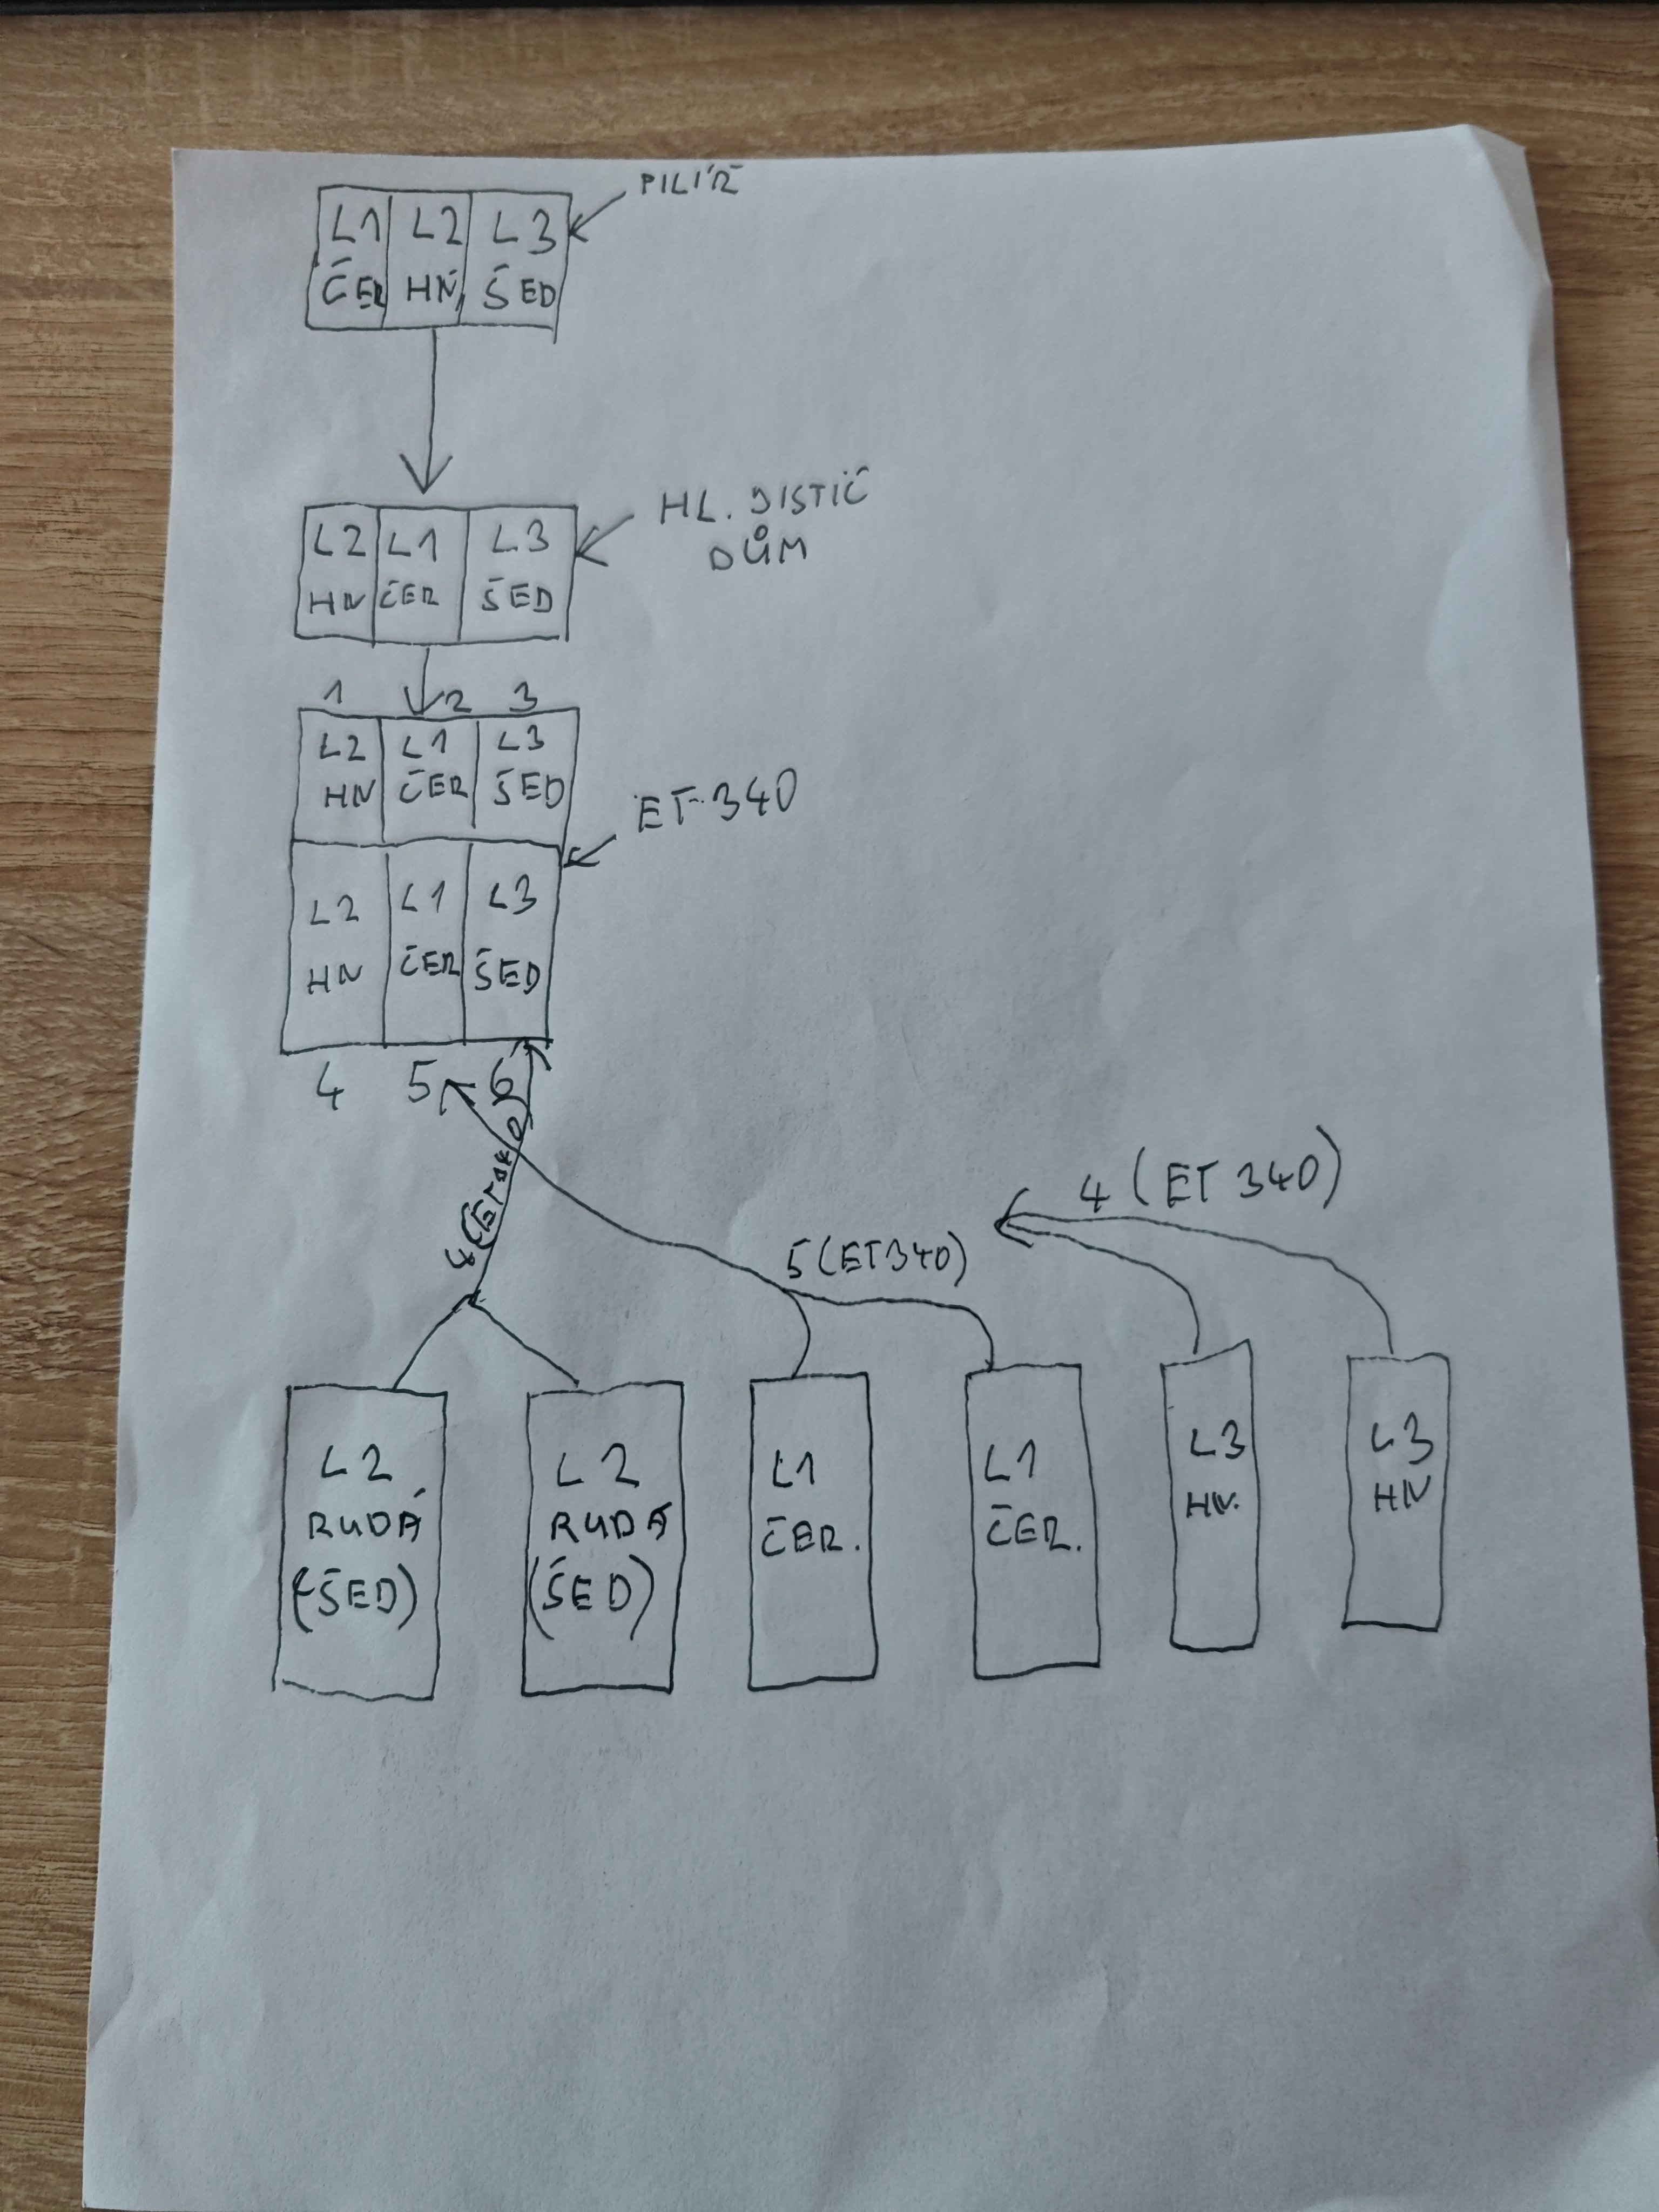 PILÍŘ
L1 L2 L3
ČER HN ŠED
HL. JISTIČ
DŮM
L2 L1 L3
HN ČER ŠED
1 2 3
L2 L1 L3
HN ČER ŠED
ET 340
L2 L1 L3
HN ČER ŠED
4 5 6
4 (ET 340)
5 (ET340)
L2 L2 L1 L1 L3 L3
RUDÁ RUDÁ ČER. ČER. HN. HN
(ŠED) (ŠED)